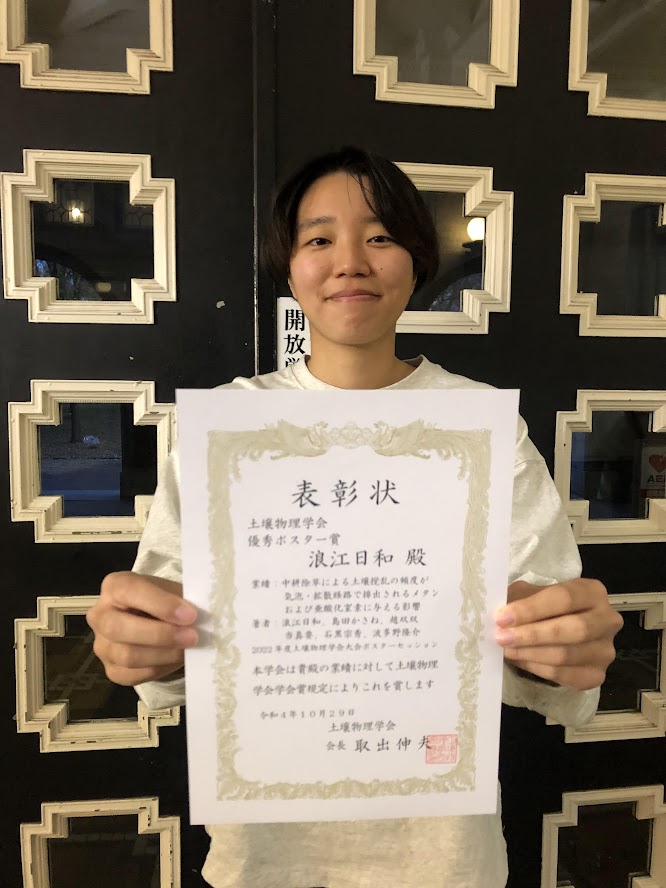 開放
表彰状
土壌物理学会
優秀ポスター賞
浪江日和 殿
業績：中耕除草による土壌撹乱の頻度が
気泡・拡散経路で排出されるメタン
および亜酸化窒素に与える影響
著者：浪江日和、島田かさね、趙双双
当真要、石黒宗秀、波多野隆介
2022年度土壌物理学会大会ポスターセッション
本学会は貴殿の業績に対して土壌物理
学会学会賞規定によりこれを賞します
令和4年10月29日
土壌物理学会
会長 取出伸夫
AED